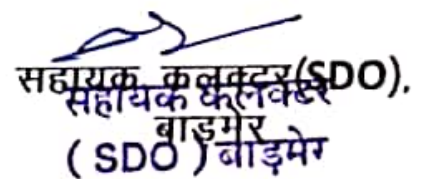 सहायक कलक्टर(SDO),
सहायक कलक्टर
बाड़मेर
( SDO ) बाड़मेर